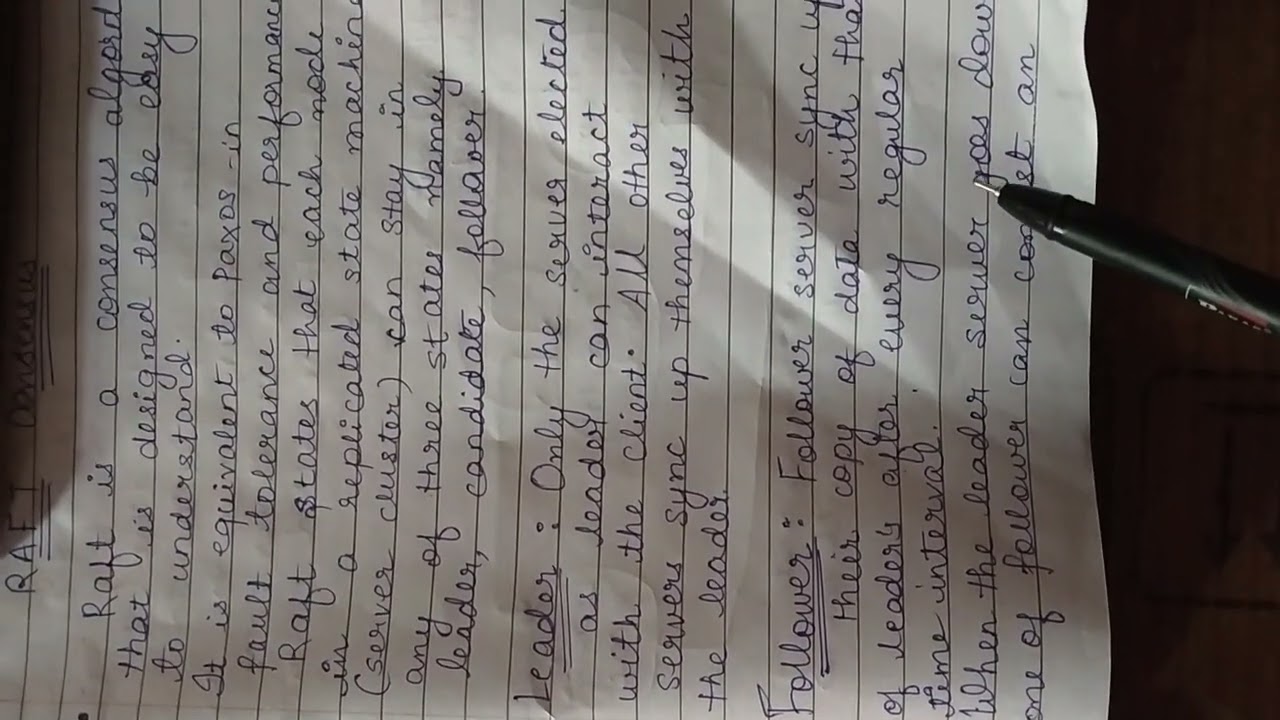 RAFT consensus
Raft is a consensus algori
that is designed to be easy
to understand.
It is equivalent to Paxos-in
fault tolerance and performance
Raft states that each node
in a replicated state machine
(server cluster) can stay in
any of three states namely
leader, candidate, follower.
Leader: Only the server elected
as leader can interact
with the client. All other
servers sync up themselves with
the leader
Follower: Follower server sync up
their copy of data with that
of leader's after every regular
time interval.
When the leader server goes down
one of follower can an